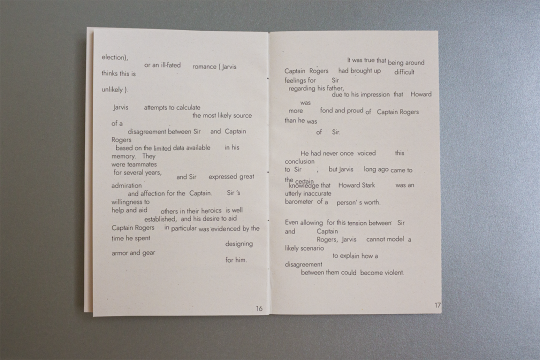 election),
or an ill-fated romance ( Jarvis
thinks this is
unlikely ).
Jarvis attempts to calculate
the most likely source
of a
disagreement between Sir and Captain
Rogers
based on the limited data available in his
memory. They
were teammates
for several years,
and Sir expressed great
admiration
and affection for the Captain. Sir 's
willingness to
help and aid others in their heroics is well
established, and his desire to aid
Captain Rogers in particular was evidenced by the
time he spent
designing
armor and gear
for him.
16
It was true that being around
Captain Rogers had brought up difficult
feelings for Sir
regarding his father,
due to his impression that Howard
was
more fond and proud of Captain Rogers
than he was
of Sir
He had never once voiced this
conclusion
to Sir , but Jarvis long ago came to
the certain
knowledge that Howard Stark was an
utterly inaccurate
barometer of a person' s worth.
Even allowing for this tension between Sir
and Captain
Rogers, Jarvis cannot model a
likely scenario
to explain how a
disagreement
between them could become violent
17